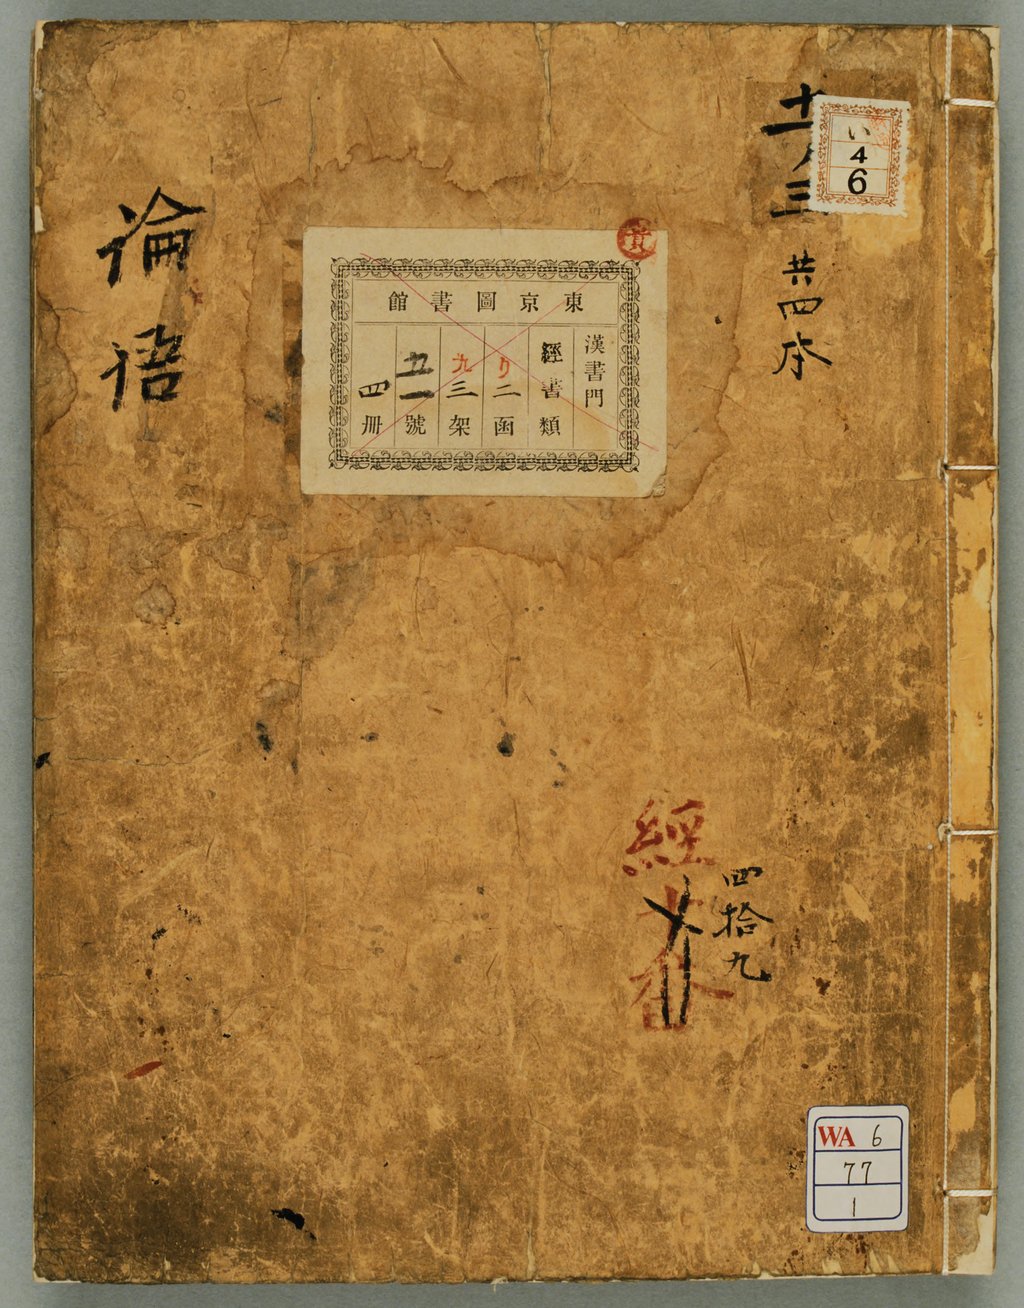 論語
東京圖書館
漢書門
經書類
り二函
九三架
五一號
四冊
貴
い
4
6
共四本
經
四拾九
WA 6
77
1